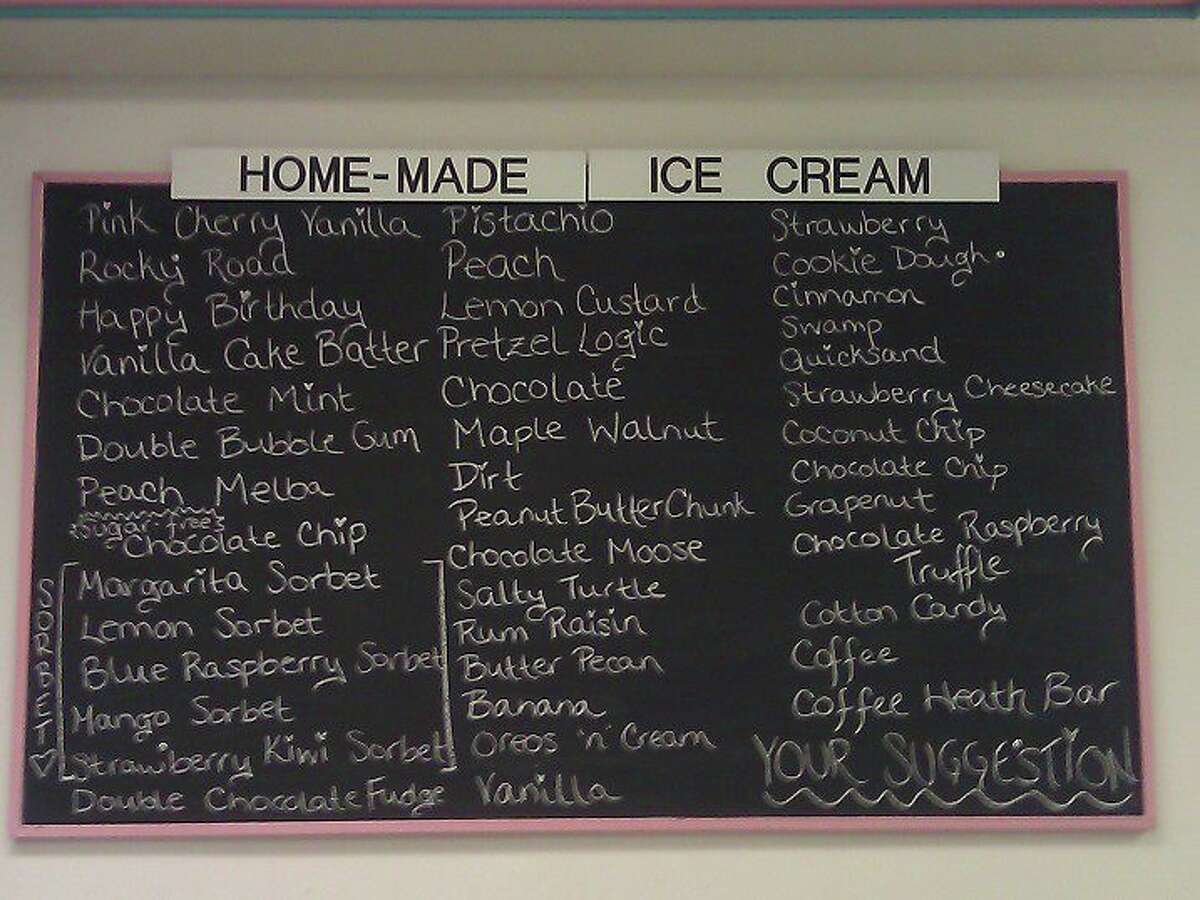 HOME-MADE ICE CREAM
Pink Cherry Vanilla
Rocky Road
Happy Birthday
Vanilla Cake Batter
Chocolate Mint
Double Bubble Gum
Peach Melba
Sugar free
Chocolate Chip
SORBET
Margarita Sorbet
Lemon Sorbet
Blue Raspberry Sorbet
Mango Sorbet
Strawiberry Kiwi Sorbet
Double Chocolate Fudge
Pistachio
Peach
Lemon Custard
Pretzel Logic
Chocolate
Maple Walnut
Dirt
Peanut Butter Chunk
Chocolate Moose
Salty Turtle
Rum Raisin
Butter Pecan
Banana
Oreos 'n' Cream
Vanilla
Strawberry
Cookie Dough.
Cinnamon
Swamp
Quicksand
Strawberry Cheesecake
Coconut Chip
Chocolate Chip
Grapenut
Chocolate Raspberry
Truffle
Cotton Candy
Coffee
Coffee Heath Bar
YOUR SUGGESTION